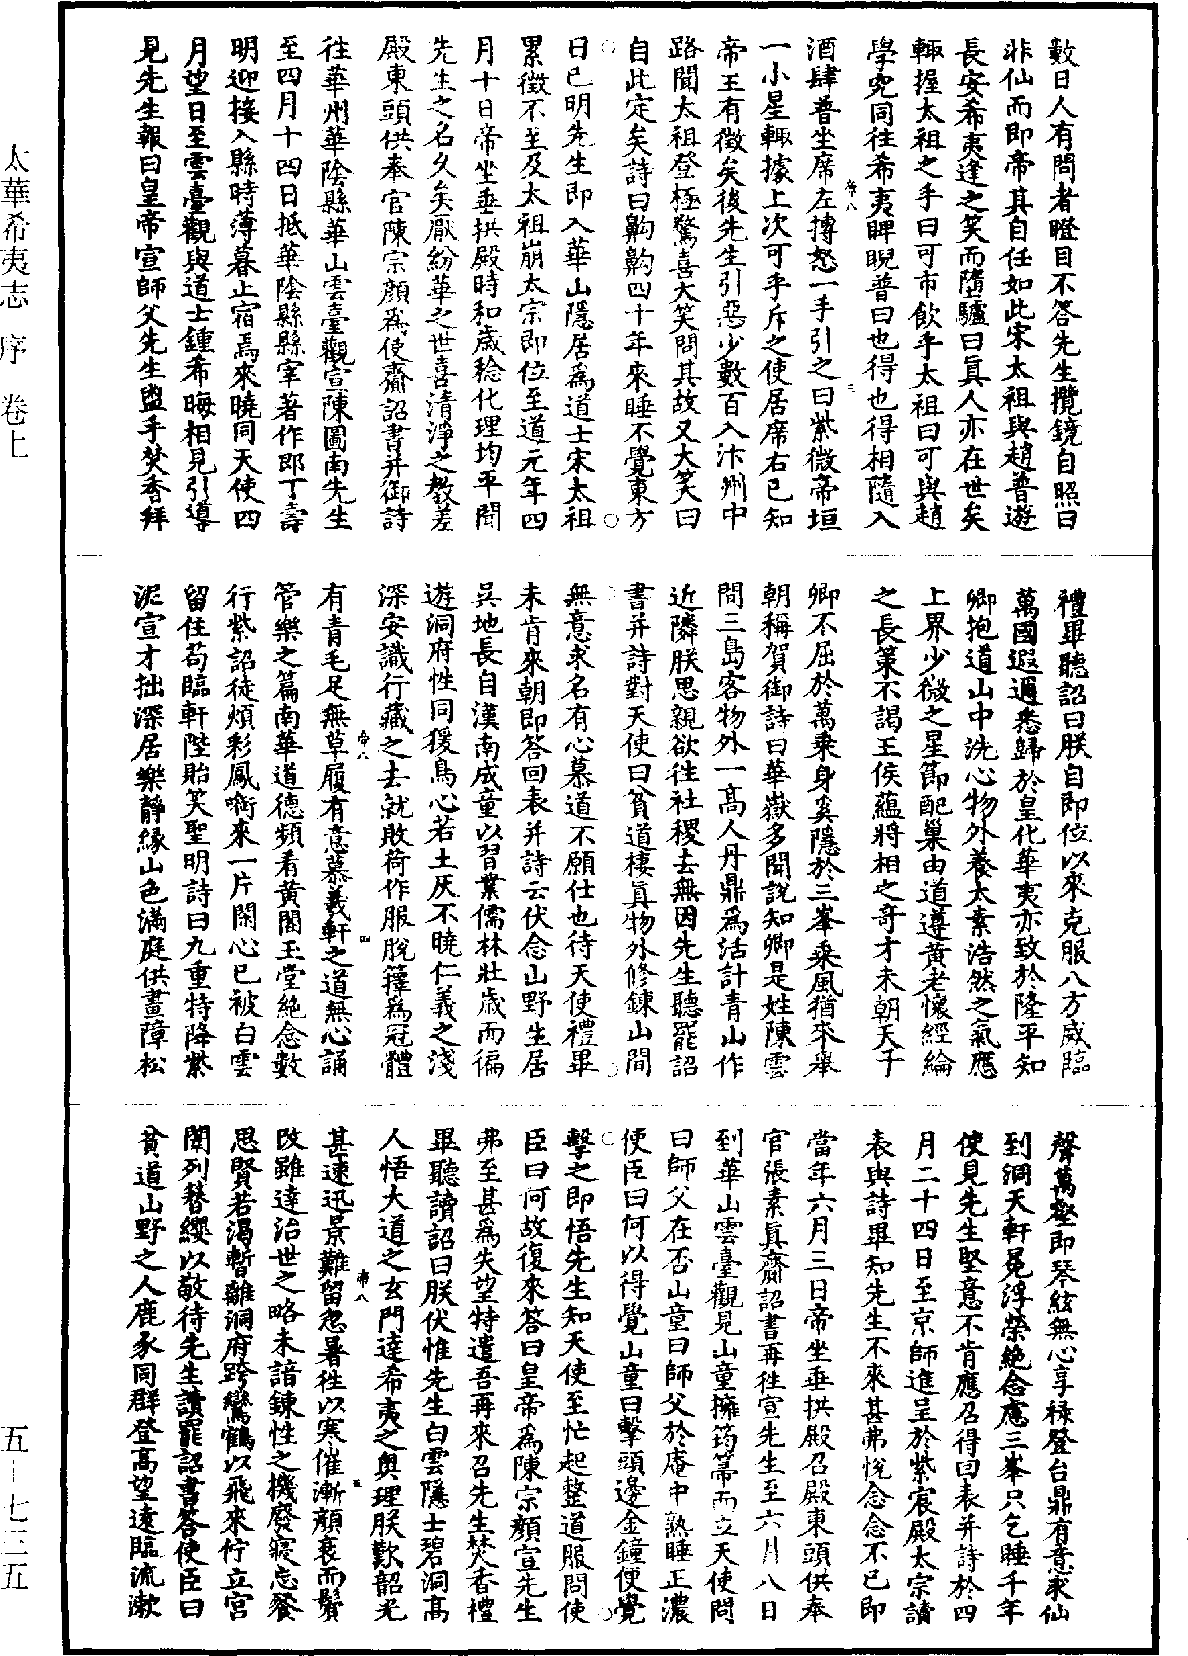 數日人有問者瞪目不答先生攬鏡自照曰
非仙而即帝其自任如此宋太祖與趙普遊
長安希夷逢之笑而墮驢曰真人亦在世矣
輙握太祖之手曰可市飲乎太祖曰可與趙
學究同往希夷睥睨普曰也得也得相隨入
酒肆普坐席左摶怒一手引之曰紫微帝垣
一小星輙據上次可乎斥之使居席右已知
帝王有徵矣後先生引惡少數百入汴州中
路聞太祖登極驚喜大笑問其故又大笑曰
自此定矣詩曰齁齁四十年來睡不覺東方
日已明先生即入華山隱居爲道士宋太祖
累徵不至及太祖崩太宗即位至道元年四
月十日帝坐垂拱殿時和歲稔化理均平聞
先生之名久矣厭紛華之世喜清淨之教差
殿東頭供奉官陳宗顔爲使齎詔書并御詩
往華州華陰縣華山雲臺觀宣陳圖南先生
至四月十四日抵華陰縣縣宰著作郎丁壽
明迎接入縣時薄暮止宿焉來曉同天使四
月望日至雲臺觀與道士鍾希晦相見引導
見先生報曰皇帝宣師父先生盥手焚香拜
禮畢聽詔曰朕自即位以來克服八方威臨
萬國遐邇悉歸於皇化華夷亦致於隆平知
卿抱道山中洗心物外養太素浩然之氣應
上界少微之星節配巢由道遵黃老懷經綸
之長策不謁王侯蘊將相之奇才未朝天子
卿不屈於萬乘身奚隱於三峯乘風猶來舉
朝稱賀御詩曰華嶽多聞說知卿是姓陳雲
間三島客物外一高人丹鼎爲活計青山作
近隣朕思親欲往社稷去無因先生聽罷詔
書并詩對天使曰貧道棲真物外修鍊山間
無意求名有心慕道不願仕也待天使禮畢
未肯來朝即答回表并詩云伏念山野生居
吳地長自漢南成童以習業儒林壯歲而徧
遊洞府性同猨鳥心若土灰不曉仁義之淺
深安識行藏之去就敗荷作服脫籜爲冠體
有青毛足無草履有意慕羲軒之道無心誦
管樂之篇南華道德頻看黃閣玉堂絶念數
行紫詔徒煩彩鳳啣來一片閑心已被白雲
留住苟臨軒陛貽笑聖明詩曰九重特降紫
泥宣才拙深居樂靜緣山色滿庭供畫障松
聲萬壑即琴絃無心享祿登台鼎有意求仙
到洞天軒冕浮榮絶念慮三峯只乞睡千年
使見先生堅意不肯應召得回表并詩於四
月二十四日至京師進呈於紫宸殿太宗讀
表與詩畢知先生不來甚弗悅念念不已即
當年六月三日帝坐垂拱殿召殿東頭供奉
官張素真齎詔書再往宣先生至六月八日
到華山雲臺觀見山童擁筠箒而立天使問
曰師父在否山童曰師父於庵中熟睡正濃
使臣曰何以得覺山童曰擊頭邊金鐘便覺
擊之即悟先生知天使至忙起整道服問使
臣曰何故復來答曰皇帝爲陳宗顔宣先生
弗至甚爲失望特遣吾再來召先生焚香禮
畢聽讀詔曰朕伏惟先生白雲隱士碧洞高
人悟大道之玄門達希夷之奥理朕歎韶光
甚速迅景難留忽暑徃以寒催漸顔衰而鬢
改雖達治世之略未諳鍊性之機廢寢忘餐
思賢若渴暫離洞府跨鸞鶴以飛來佇立宮
闈列簪纓以敬待先生讀罷詔書答使臣曰
貧道山野之人鹿豕同群登高望遠臨流漱
太華希夷志 序 卷上
五-七三五